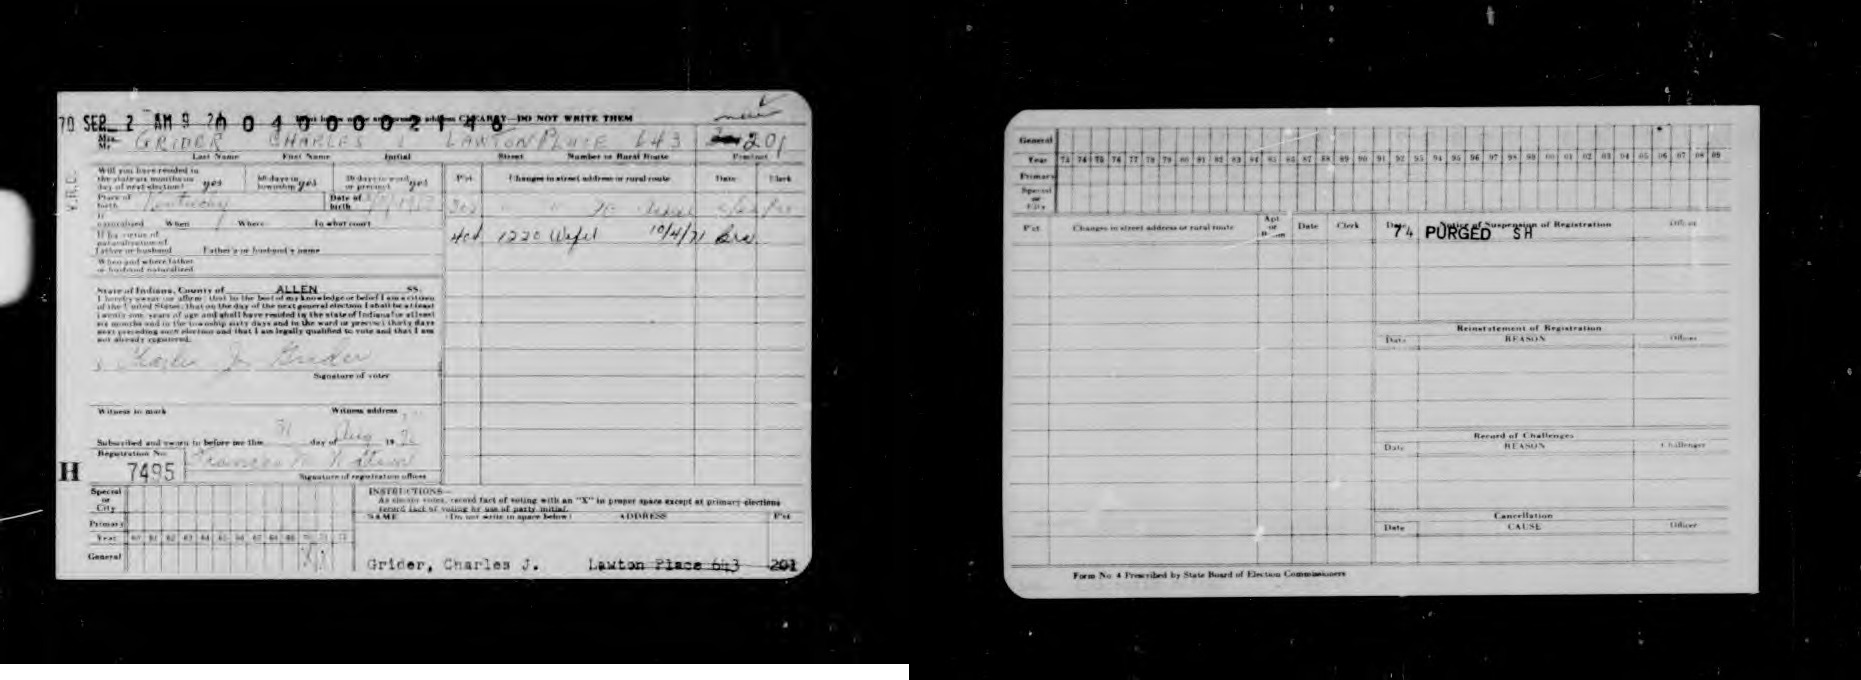 70 SEP 2 AM 9 04000002146 CLEARLY—DO NOT WRITE THEM
Mrs.
Mr. GRIDER CHARLES J LAWTON PLACE 643 201
Last Name First Name Initial Street Number or Rural Route Precinct
Will you have resided in
the state six months on
day of next election? yes 60 days in
township yes 30 days in ward
or precinct yes
Pct Changes in street address or rural route Date Clerk
V.R.C.
Place of
birth Kentucky Date of
birth
If
naturalized When Where In what court
404 1220 Wefel 10/4/71
If by virtue of
naturalization of
father or husband Father's or husband's name
When and where father
or husband naturalized
State of Indiana, County of ALLEN SS.
I hereby swear (or affirm) that to the best of my knowledge or belief I am a citizen
of the United States, that on the day of the next general election I shall be at least
twenty-one years of age and shall have resided in the state of Indiana for at least
six months and in the township sixty days and in the ward or precinct thirty days
next preceding such election and that I am legally qualified to vote and that I am
not already registered.
Charles J. Grider
Signature of voter
Witness to mark Witness address
Subscribed and sworn to before me this 31 day of Aug 19 70
Registration No.
H 7495 Frances
Signature of registration officer
Special
or
City
Primary
Year 60 61 62 63 64 65 66 67 68 69 70 71 72
General X
INSTRUCTIONS—
As elector votes, record fact of voting with an "X" in proper space except at primary elections
record fact of voting by use of party initial.
NAME (Do not write in space below) ADDRESS Pct
Grider, Charles J. Lawton Place 643 201
General
Year 73 74 75 76 77 78 79 80 81 82 83 84 85 86 87 88 89 90 91 92 93 94 95 96 97 98 99 00 01 02 03 04 05 06 07 08 09
Primary
Special
or
City
Pct Changes in street address or rural route Apt
or
Room Date Clerk
Notice of Suspension of Registration
Date Officer
74 PURGED SH
Reinstatement of Registration
Date REASON Officer
Record of Challenges
Date REASON Challenger
Cancellation
Date CAUSE Officer
Form No. 4 Prescribed by State Board of Election Commissioners